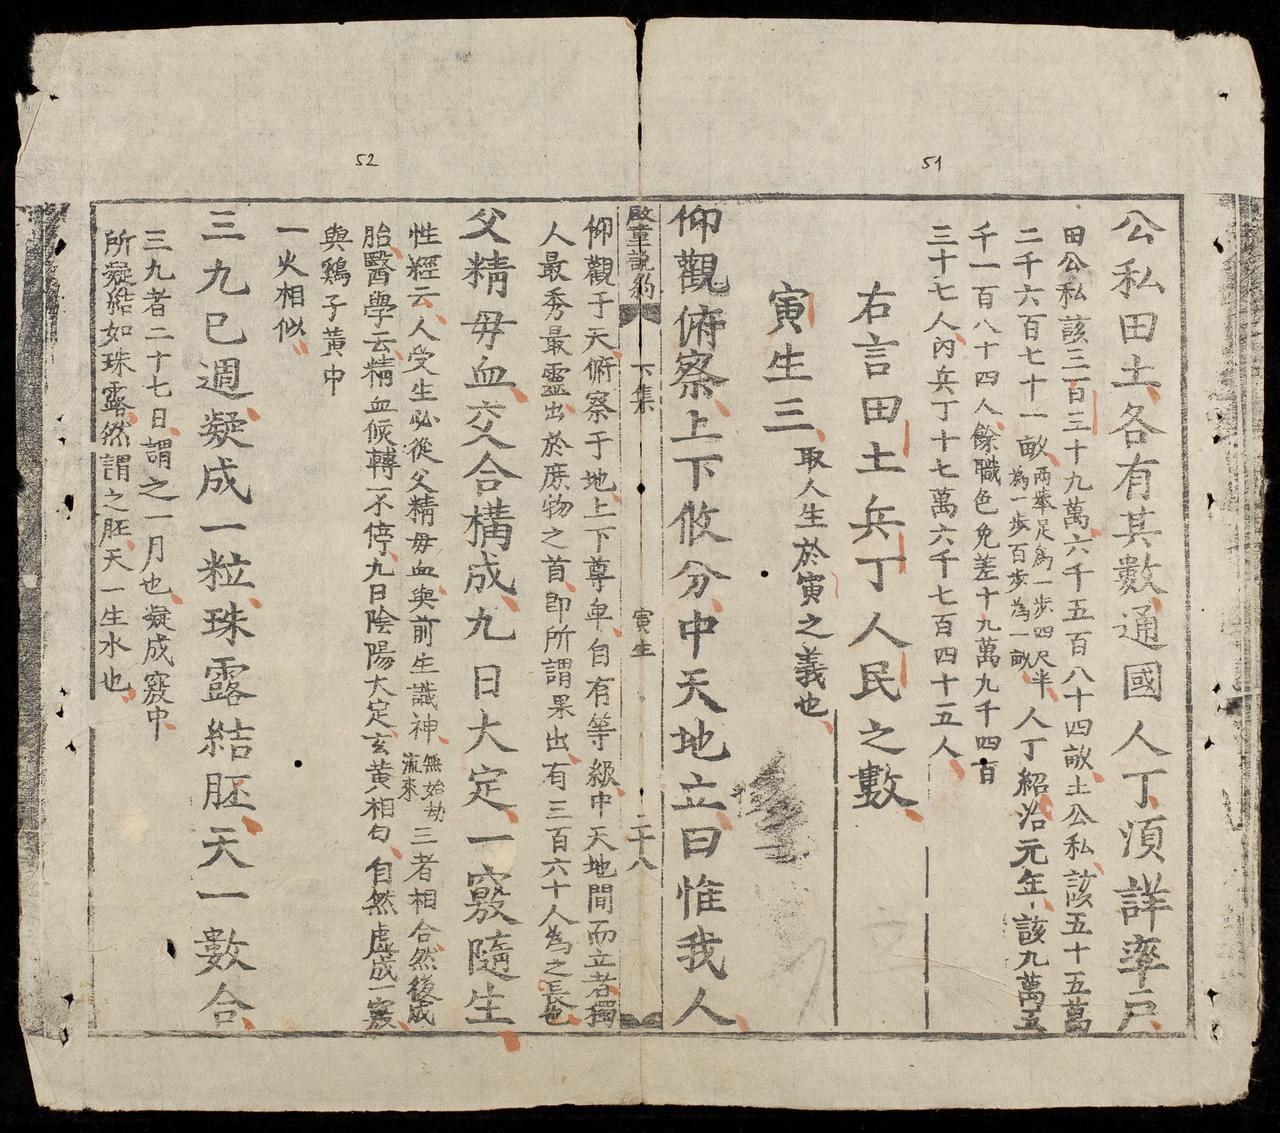 51
公私田土各有其數通國人丁湏詳率戸
田公私該三百三十九萬六千五百八十四畝土公私該五十五萬
二千六百七十一畝兩舉足為一步四尺半為一步百步為一畝人丁紹治元年該九萬五
千一百八十四人餘職色免差十九萬九千四百
三十七人內兵丁十七萬六千七百四十五人
右言田土兵丁人民之數
寅生三取人生於寅之義也
仰觀俯察上下攸分中天地立曰惟我人
啟童說約 下集 寅生 二十八
52
仰觀于天俯察于地上下尊卑自有等級中天地間而立者獨
人最秀最靈出於庶物之首即所謂果出有三百六十人為之長也
父精毋血交合構成九日大定一竅隨生
性經云人受生必從父精毋血與前生識神無始劫流來三者相合然後成
胎醫學云精血候轉不停九日陰陽大定玄黃相勾自然虛成一竅
與鷄子黃中
一火相似
三九已週凝成一粒珠露結胚天一數合
三九者二十七日謂之一月也凝成竅中
所凝結如珠露然謂之胚天一生水也